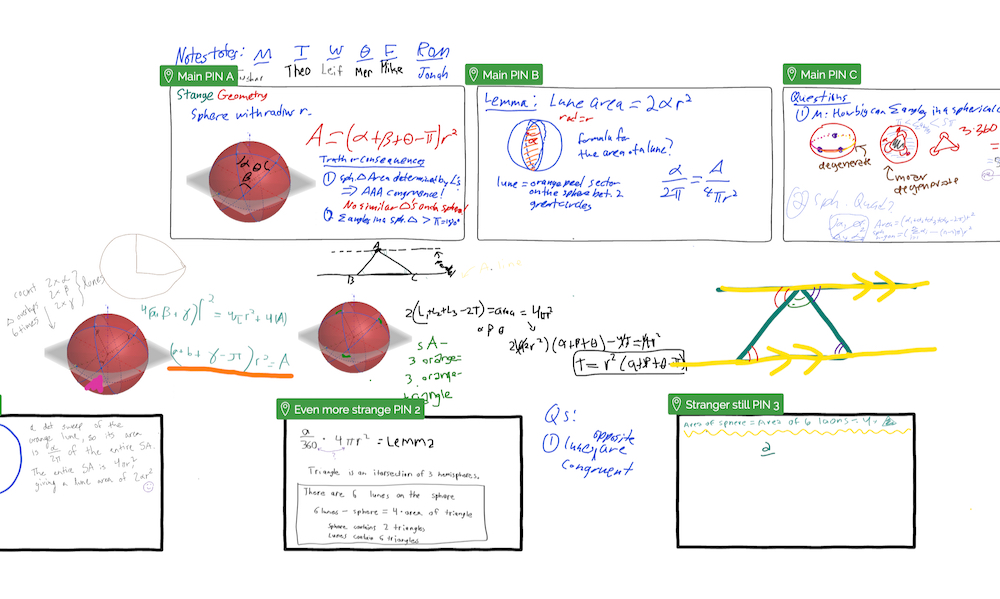 Notestotes: M T W Θ F Rom
Theo Leif Mer Mike Jonah
Main PIN A
Stange Geometry
Sphere with radius r.
A = (α+β+θ-π)r²
Truth or consequences
① Sph. △ Area determined by ∠'s
⇒ AAA congruence!
No similar △'s on a sphere!
② Σ angles in a sph. △ > π=180°
α θ C
B
Main PIN B
Lemma: Lune area = 2αr²
rad=r
α
formula for
the area of a lune?
lune = orange peel sector
on the sphere bet. 2
great circles
α/2π = A/4πr²
Main PIN C
Questions
① M: How big can Σ angles in a spherical
degenerate
more
degenerate
3·360
=
② Sph. Quad?
Area =
A
B C
count 2×α
2×β
2×γ
} lunes
△ overlaps
6 times
4(α+β+γ)r² = 4πr²+4(A)
(a+b+γ-π)r²=A
2(L₁+L₂+L₃-2T)=area = 4πr²
α β θ
T = r²(α+β+θ-π)
SA-
3 orange-
3 orange-
triangle
a dot sweep of the
orange lune, so its area
is α/2π of the entire SA.
The entire SA is 4πr²,
giving a lune area of 2αr²
Even more strange PIN 2
a/360 · 4πr² = Lemma
Triangle is an itersection of 3 hemispheres.
There are 6 lunes on the sphere
6 lunes - sphere = 4 · area of triangle
Sphere contains 2 triangles
Lunes contain 6 triangles
Qs:
① lunes opposite are
congruent
Stranger still PIN 3
Area of sphere = Area of 6 laons - 4 ·
2